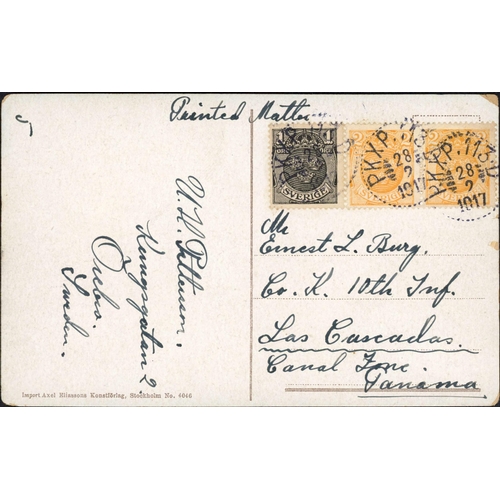 5
Printed Matter
1
SVERIGE
PKXP. 113
28
2
1917
PKXP. 113 D
28
2
1917
Mr
Ernest L. Burg.
Co. K. 10th Inf.
Las Cascadas.
Canal Zone.
Panama.
Kungsgatan 2
Örebro.
Sweden.
Import Axel Eliassons Konstförlag, Stockholm No. 4046